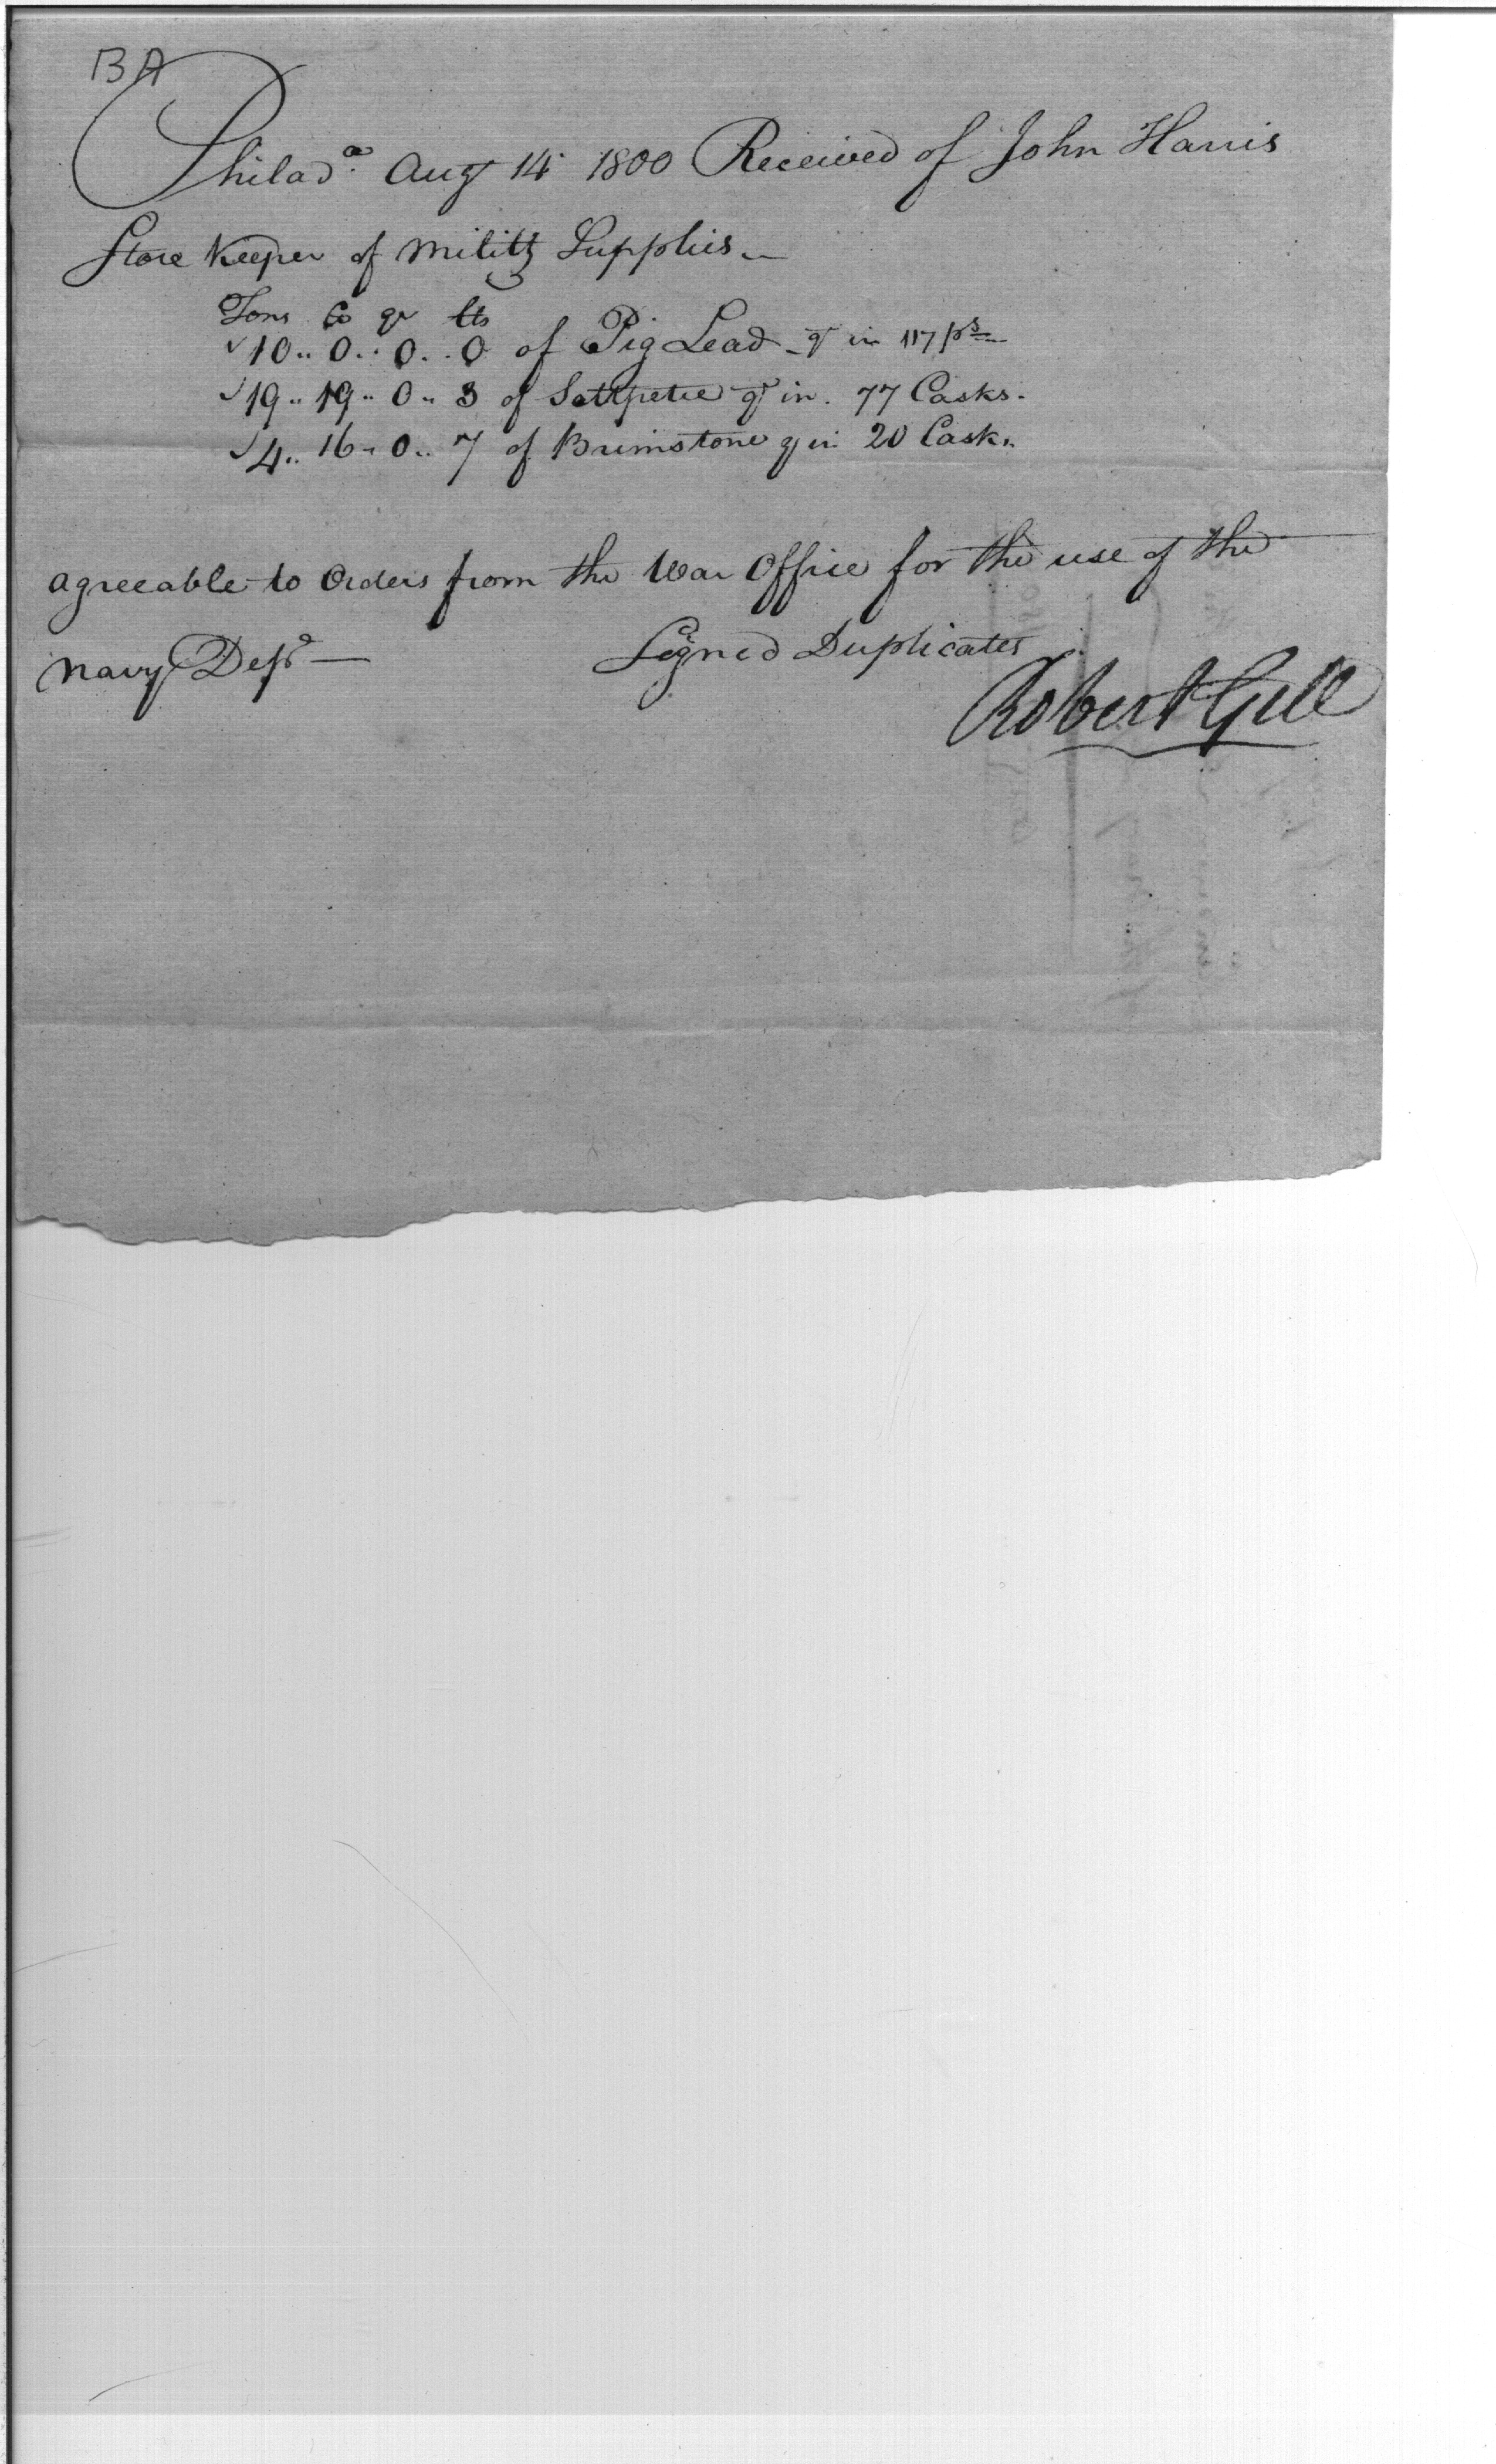 BA
Philad.a Aug 14 1800 Received of John Harris
Store Keeper of Mility Supplies
Tons C qr lbs
10.. 0.. 0.. 0 of Pig Lead - qy in 117 ps
19.. 19.. 0.. 3 of Saltpetre qy in. 77 Casks.
4.. 16.. 0.. 7 of Brimstone qy in 20 Casks.
agreeable to Orders from the War Office for the use of the
Navy Dept —
Signed Duplicates
Robert Gill